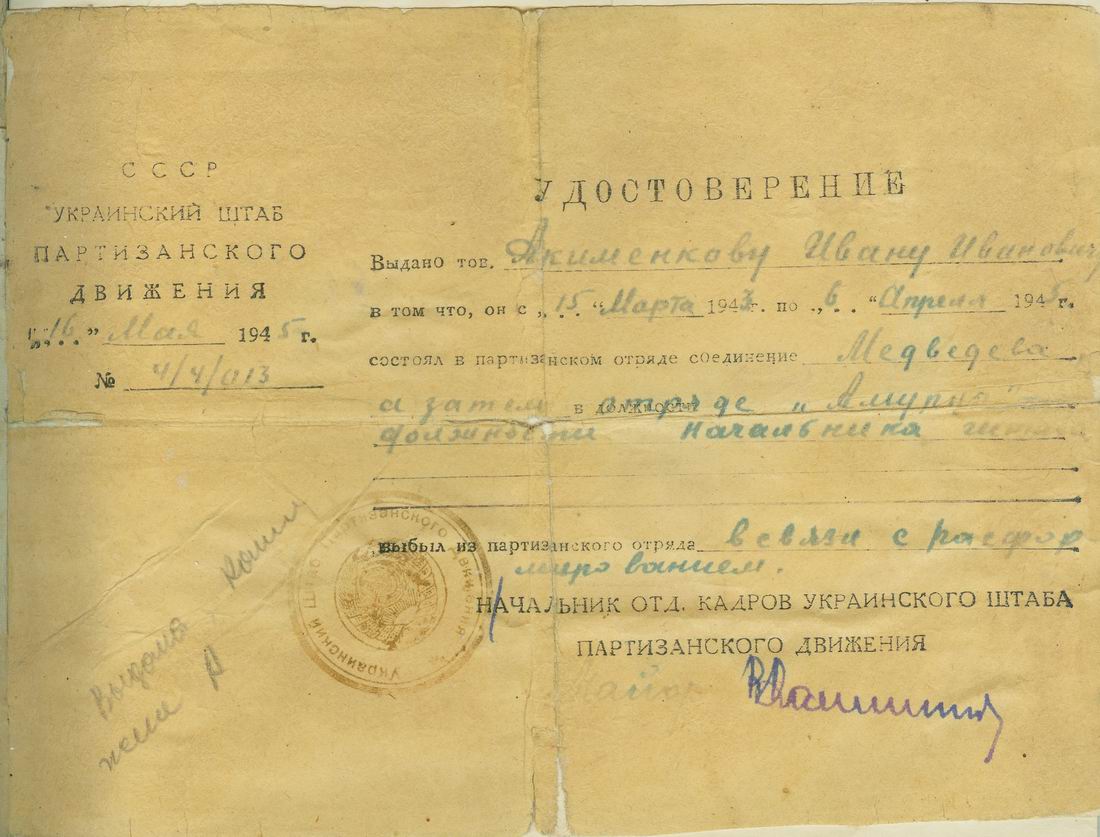 СССР
УКРАИНСКИЙ ШТАБ
ПАРТИЗАНСКОГО
ДВИЖЕНИЯ
„16” Мая 1945 г.
№ 4/4/013
УДОСТОВЕРЕНИЕ
Выдано тов. Акименкову Ивану Ивановичу
в том что, он с „15 “Марта 1943 г. по „6 “Апреля 1945 г.
состоял в партизанском отряде соединение Медведева
а затем в должности отряде
должности начальника штаба
выбыл из партизанского отряда всвязи с расфор
мированием.
НАЧАЛЬНИК ОТД. КАДРОВ УКРАИНСКОГО ШТАБА
ПАРТИЗАНСКОГО ДВИЖЕНИЯ
Украинский Штаб Партизанского Движения
Выдана